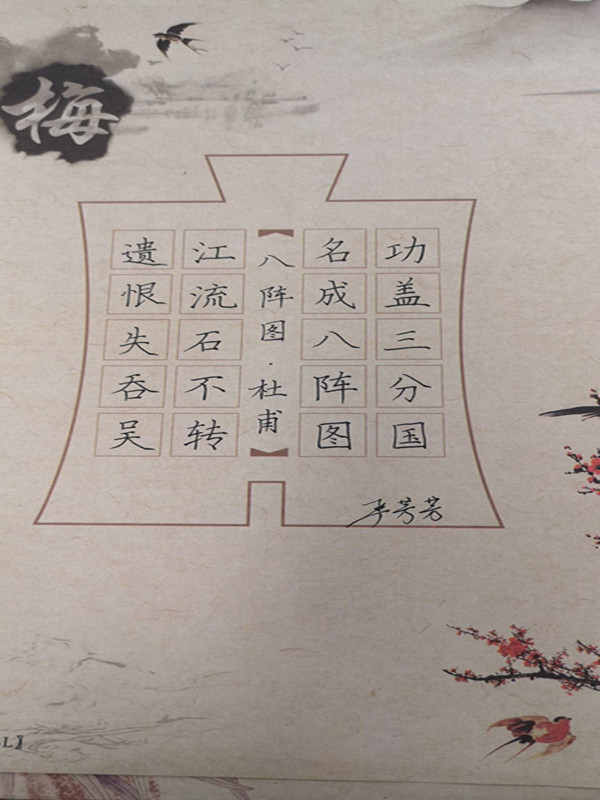 梅
功盖三分国
名成八阵图
八阵图·杜甫
江流石不转
遗恨失吞吴
芳芳
L】